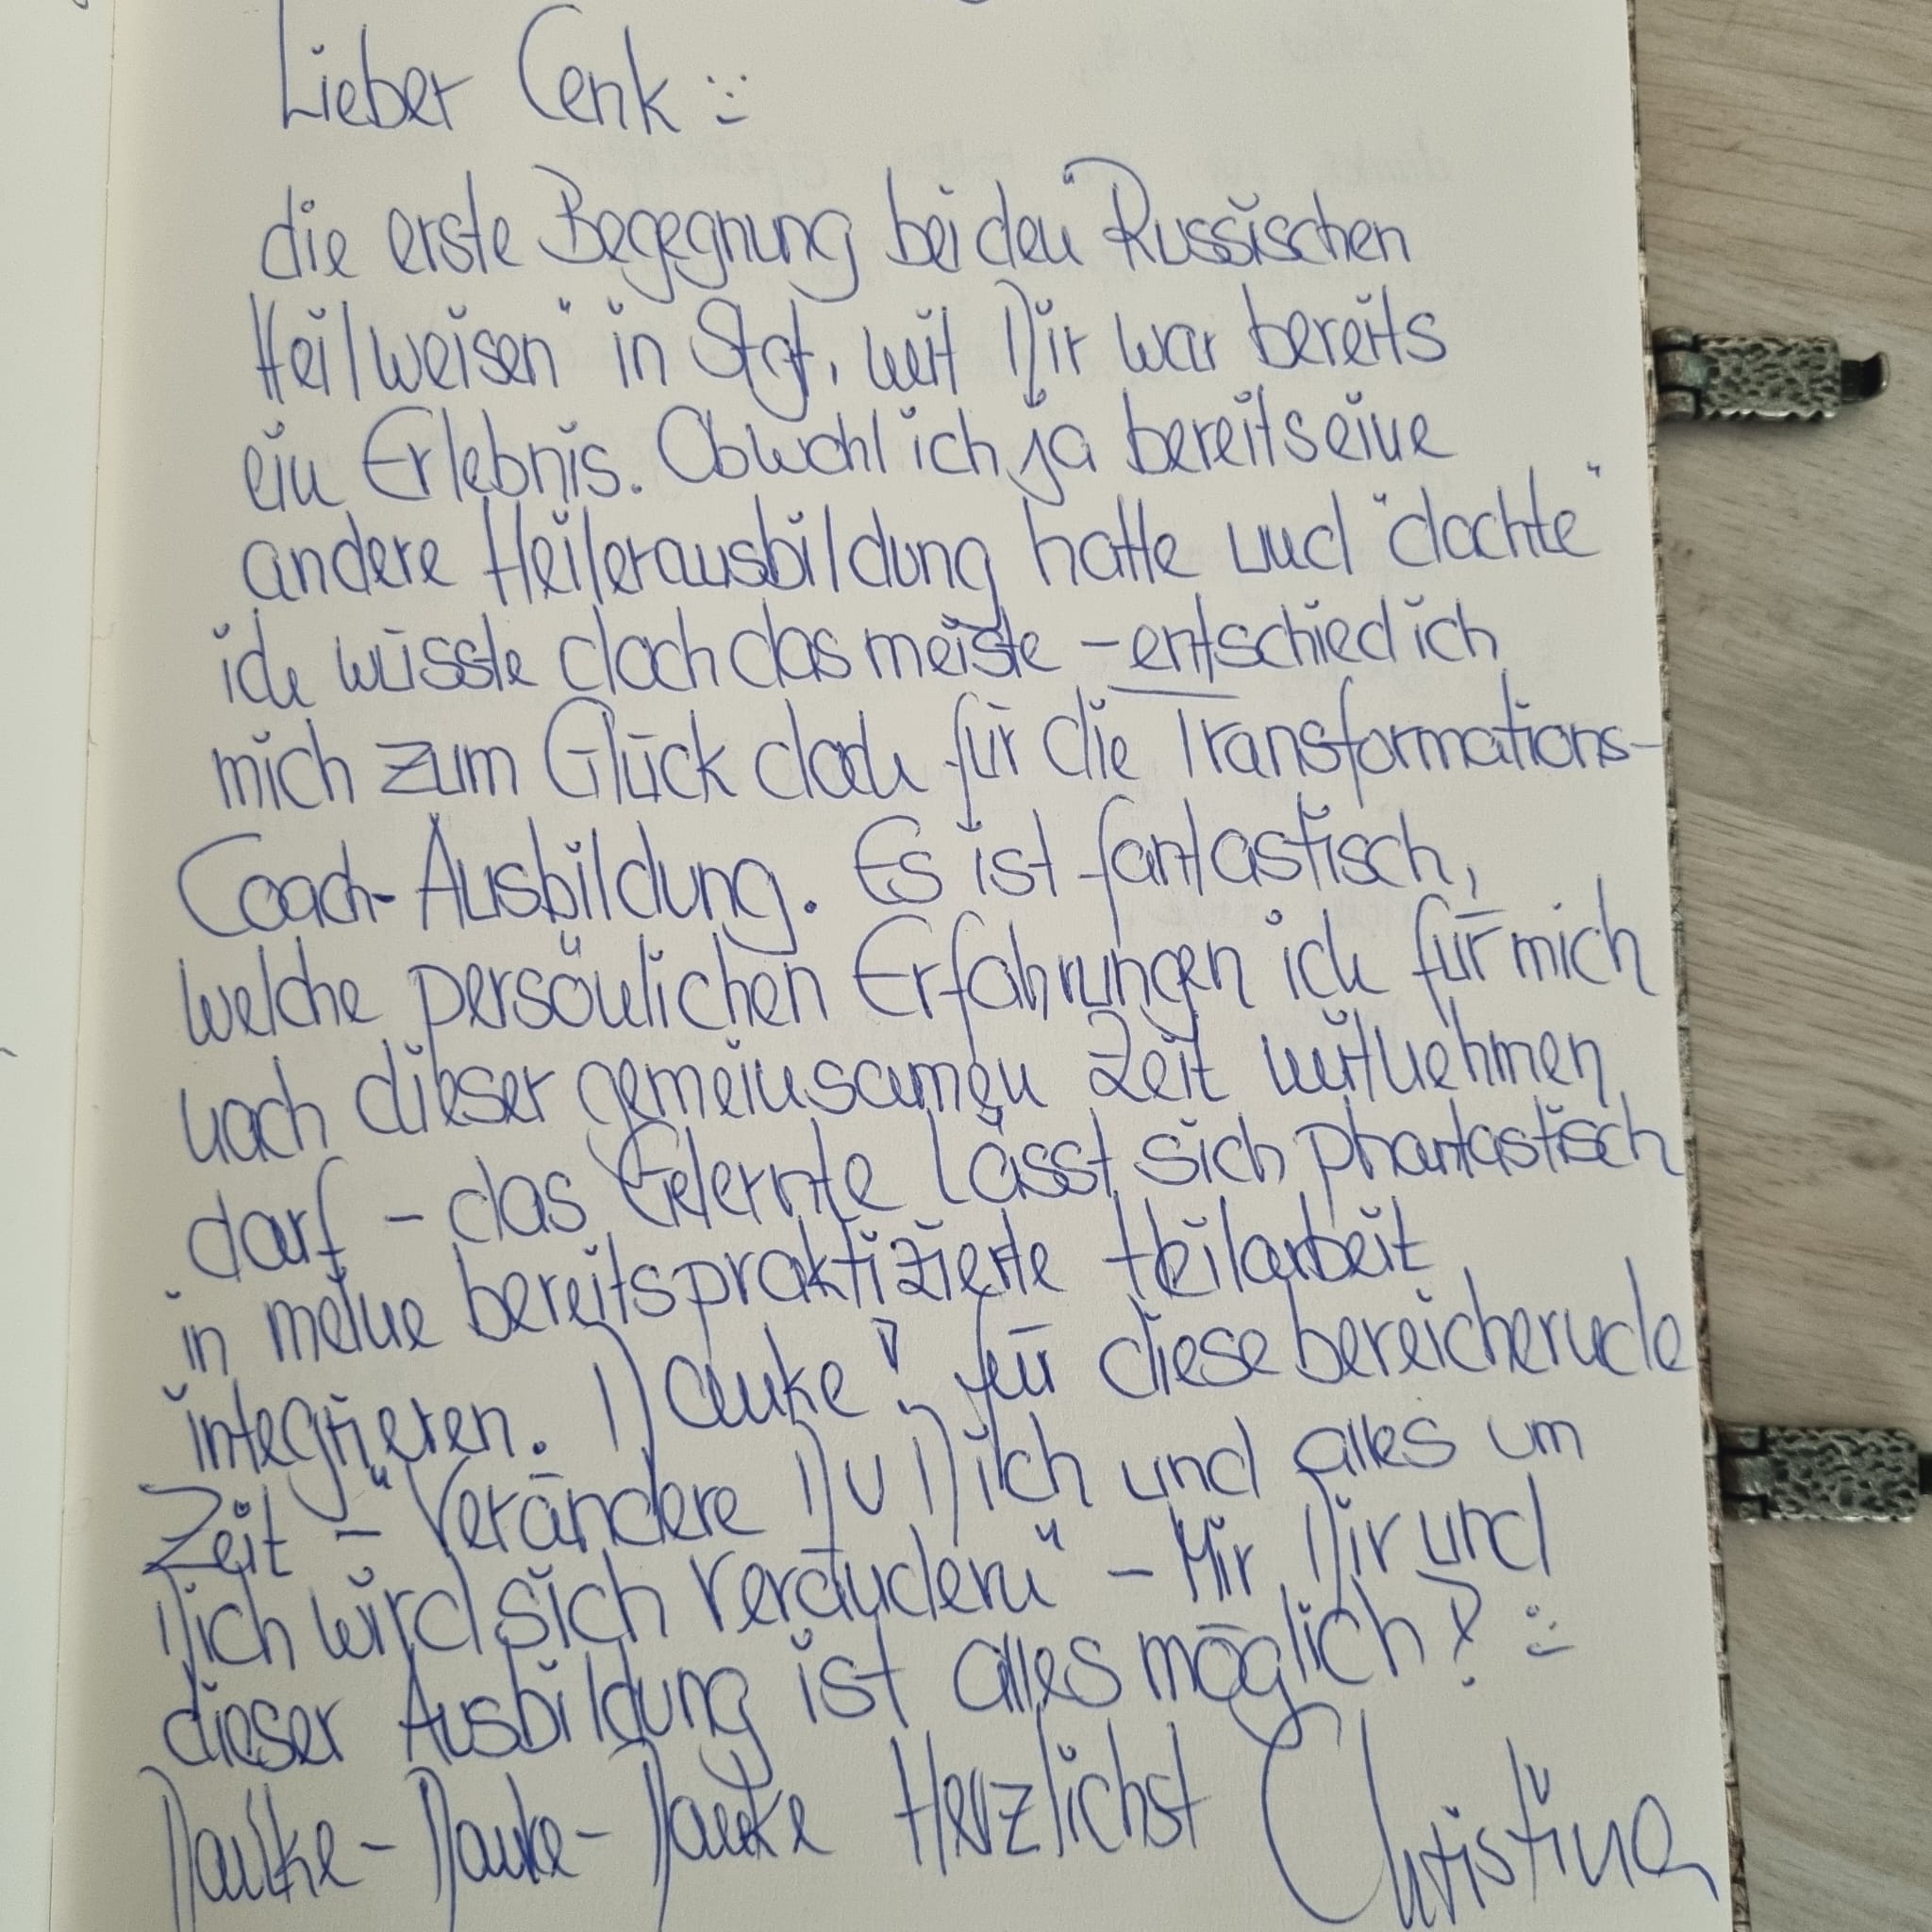 Lieber Cenk :)
die erste Begegnung bei den "Russischen
Heilweisen" in Stgt. mit Dir war bereits
ein Erlebnis. Obwohl ich ja bereits eine
andere Heilerausbildung hatte und "dachte"
ich wüsste doch das meiste - entschied ich
mich zum Glück doch für die Transformations-
Coach-Ausbildung. Es ist fantastisch,
welche persönlichen Erfahrungen ich für mich
nach dieser gemeinsamen Zeit mitnehmen
darf - das Gelernte lässt sich phantastisch
in meine bereits praktizierte Heilarbeit
integrieren. Danke! für diese bereichernde
Zeit - "Verändere Du Dich und alles um
Dich wird sich verändern" - Mir Dir und
dieser Ausbildung ist alles möglich! :)
Danke - Danke - Danke Herzlichst Christina